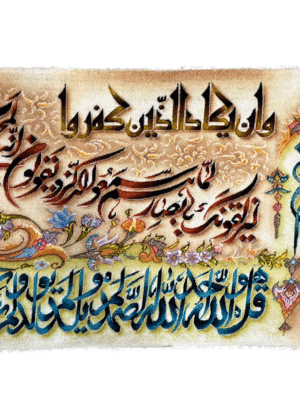 وان یکاد الذین کفروا
لیزلقونک بابصارهم لما سمعوا الذکر و یقولون انه
قل هو الله احد الله الصمد لم یلد و لم یولد و لم